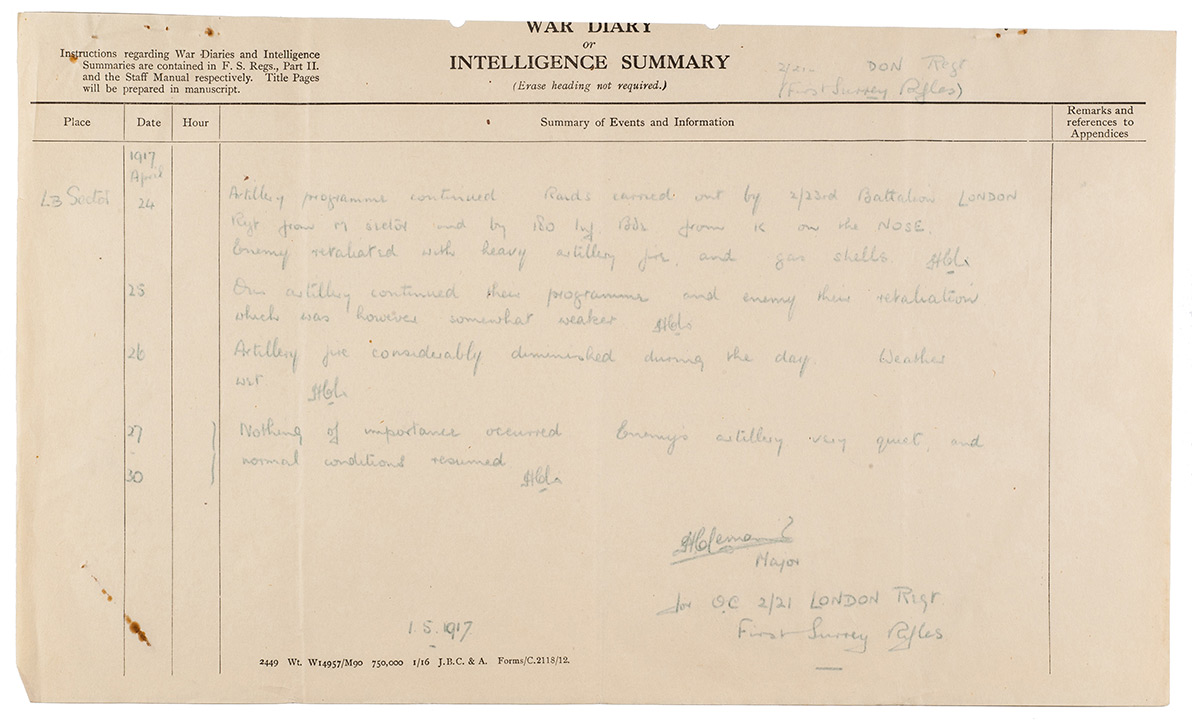 WAR DIARY
or
INTELLIGENCE SUMMARY
(Erase heading not required.)
Instructions regarding War Diaries and Intelligence
Summaries are contained in F. S. Regs., Part II.
and the Staff Manual respectively. Title Pages
will be prepared in manuscript.
2/21 DON Regt
(First Surrey Rifles)
Place Date Hour Summary of Events and Information Remarks and references to Appendices
1917
April
Sector 24 Artillery programme continued Raids carried out by 2/23rd Battalion LONDON
Regt from M sector and by 180 Inf. Bde from K on the NOSE.
Enemy retaliated with heavy artillery fire, and gas shells.
25 Our artillery continued their programme and enemy their retaliation
which was however somewhat weaker
26 Artillery fire considerably diminished during the day. Weather
wet.
27 Nothing of importance occurred Enemy's artillery very quiet, and
normal conditions resumed.
30
Major
for O.C 2/21 LONDON Regt.
First Surrey Rifles
1.5.1917
2449 Wt. W14957/M90 750,000 1/16 J.B.C. & A. Forms/C.2118/12.